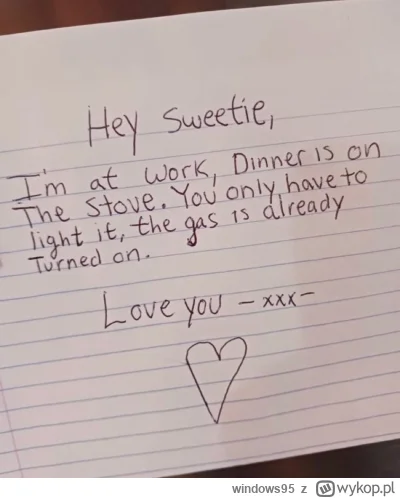 Hey Sweetie,
I'm at work, Dinner is on
The stove. You only have to
light it, the gas is already
Turned on.
Love you - xxx -
windows95 z wykop.pl